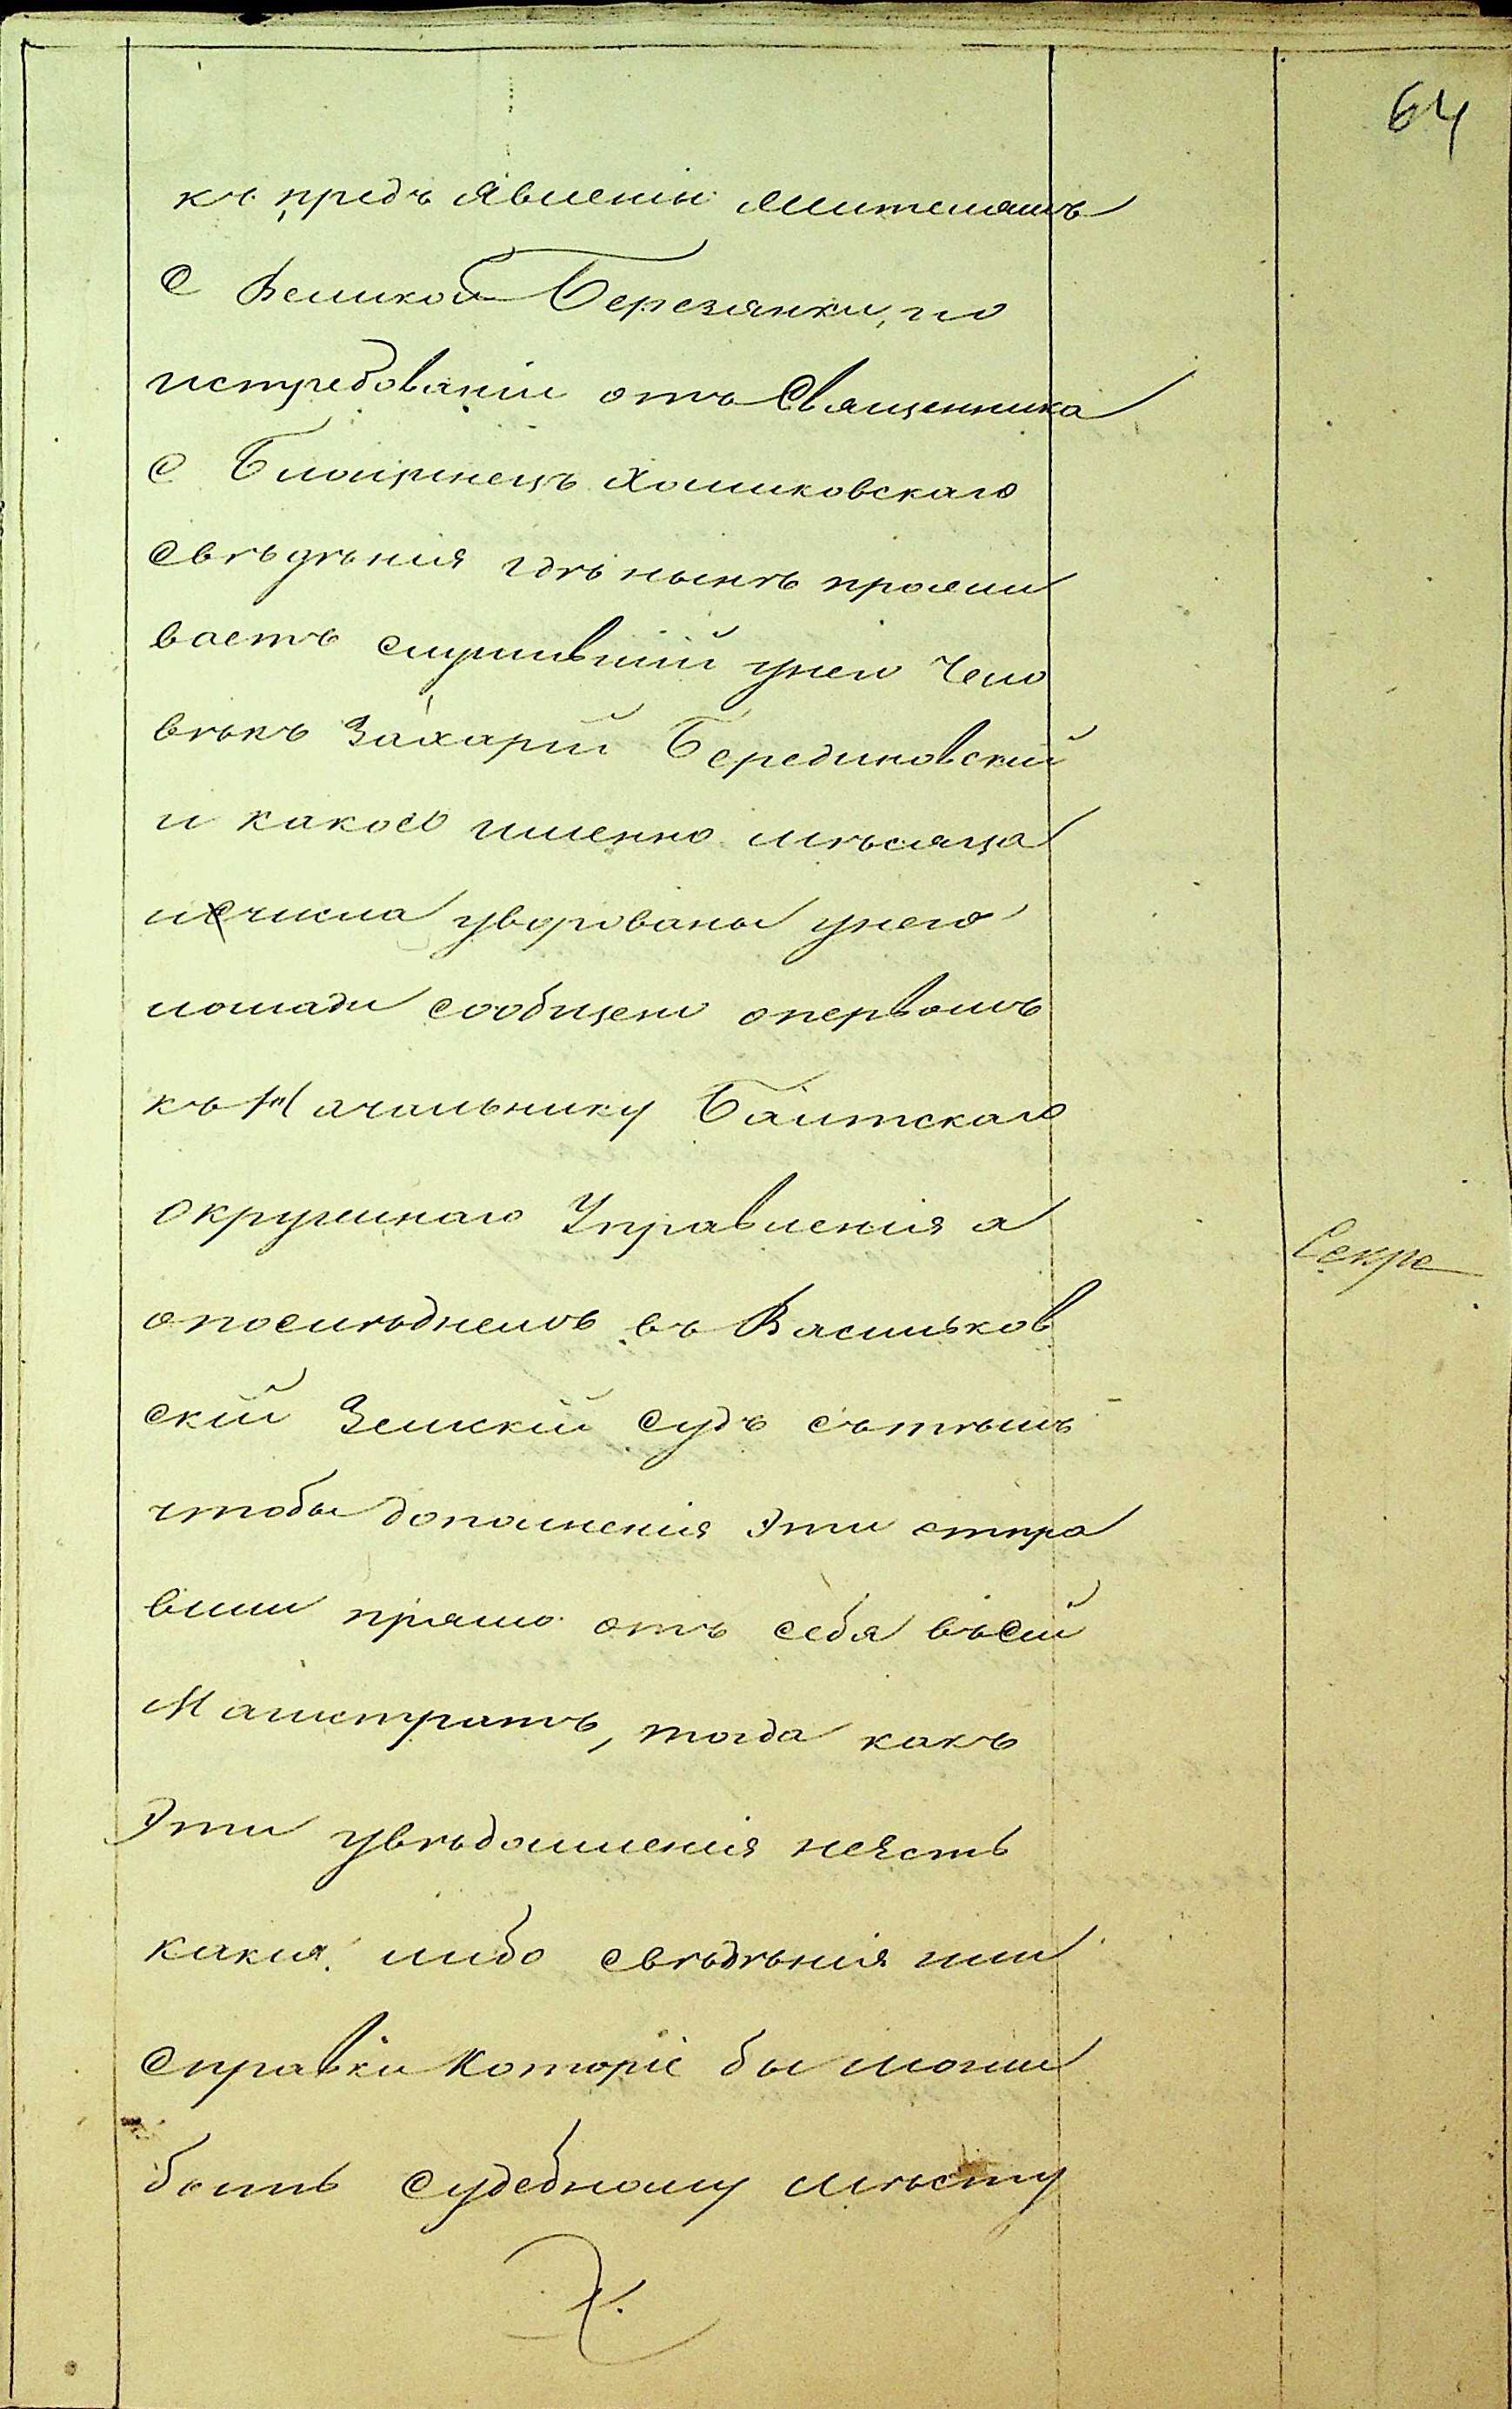 64
къ предъявленію жителямъ
с Великой Березянки, по
истребованіи отъ Священника
с Хомиковскаго
свѣдѣнія гдѣ нынѣ прожи
ваетъ служившій унего Чело
вѣкъ Захарій Берединовскій
и какого именно мѣсяца
и числа уворованы унего
лошади сообщено опервомъ
къ Началънику Балтскаго
Окружнаго Управленія а
опослѣднемъ въ Васильков
скій Земскій Судъ сътѣмъ
чтобы дополненія Эти отпра
вили прямо отъ себя въсей
Магистратъ, тогда какъ
Эти увѣдомленія неесть
какія либо свѣдѣнія или
справки Которіе бы могли
быть судебному мѣсту
Секре